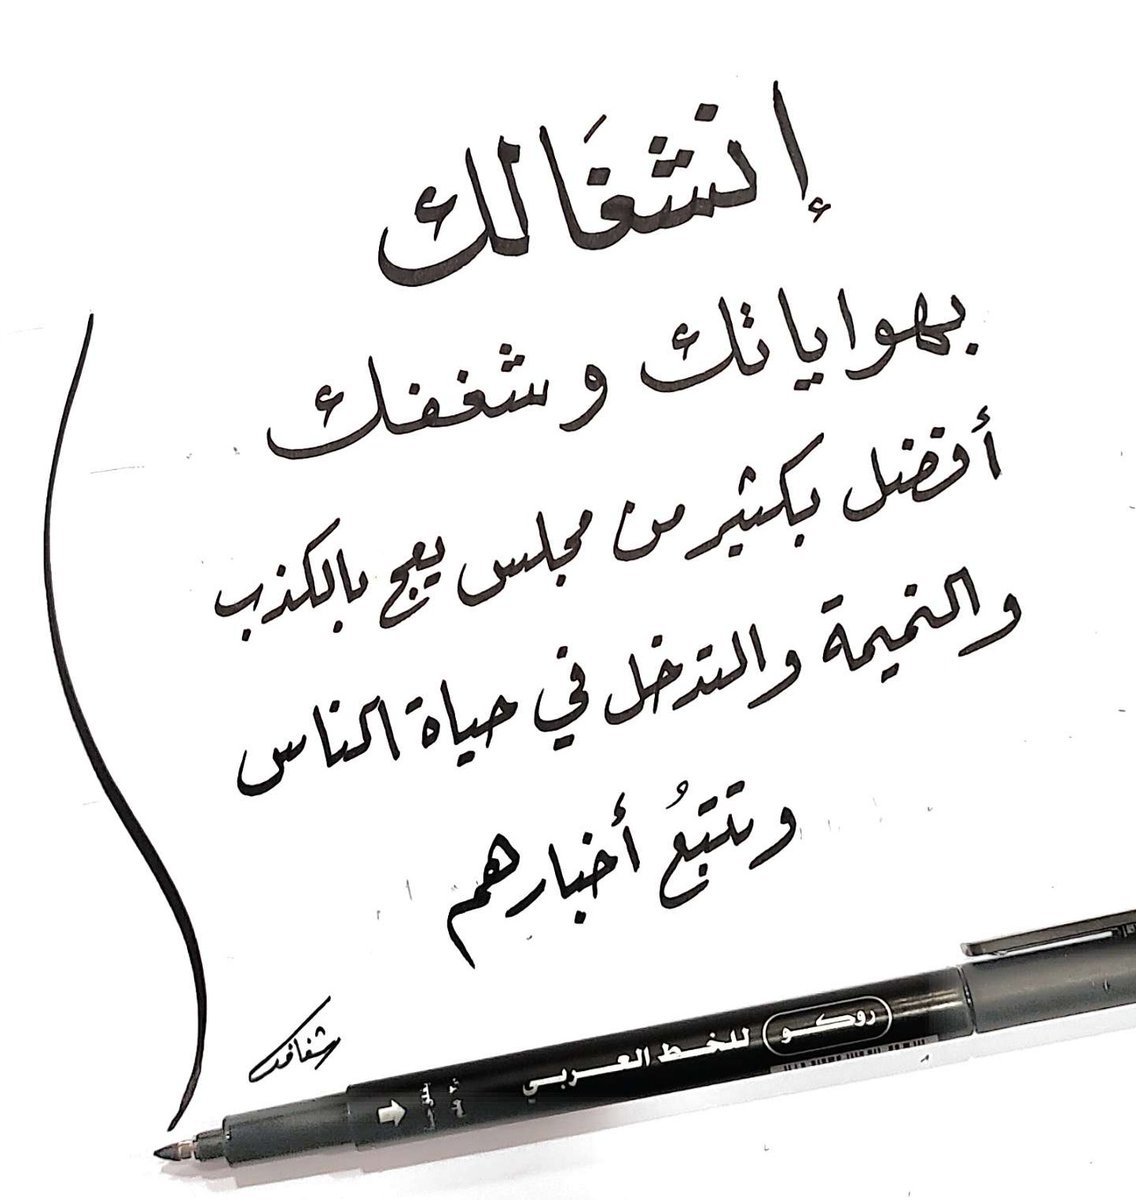 إنشغَالك
بهواياتك وشغفك
أفضل بكثير من مجلس يعج بالكذب
والنميمة والتدخل في حياة الناس
وتتبعُ أخبارهم
روكو للخط العربي